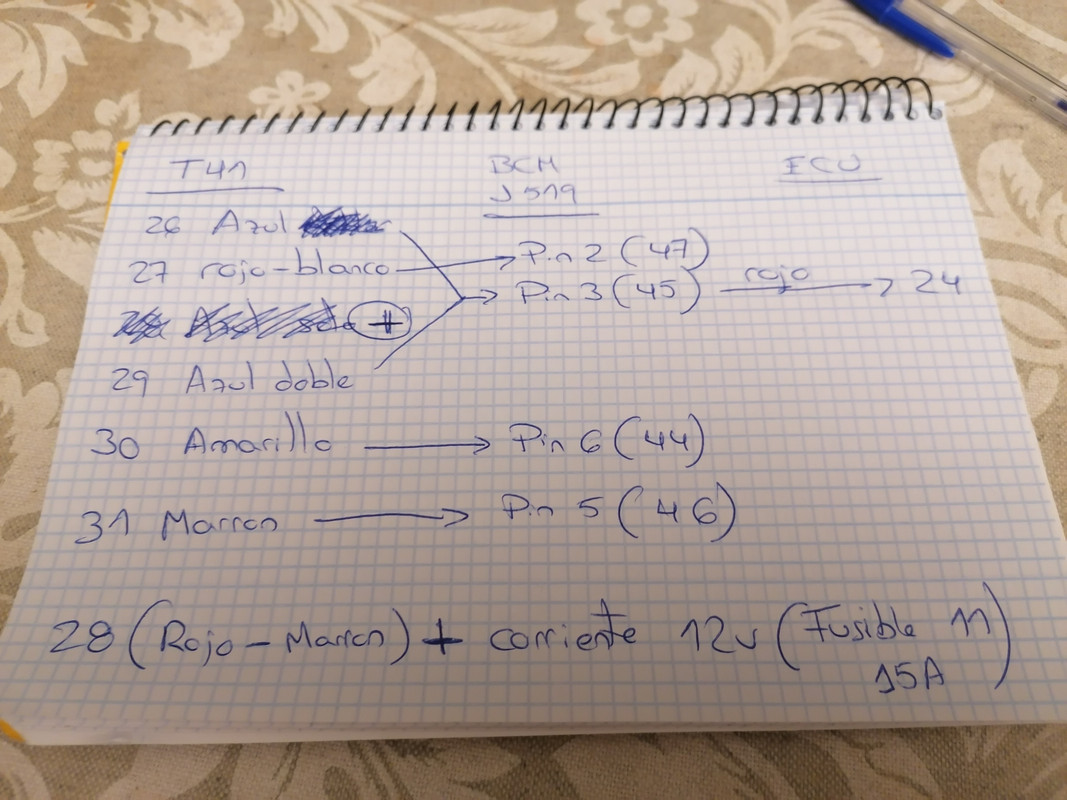 T41 BCM ECU
J519
26 Azul
27 rojo-blanco → Pin 2 (47)
→ Pin 3 (45) rojo → 24
+
29 Azul doble
30 Amarillo → Pin 6 (44)
31 Marron → Pin 5 (46)
28 (Rojo-Marron) + corriente 12v (Fusible 11)
15A